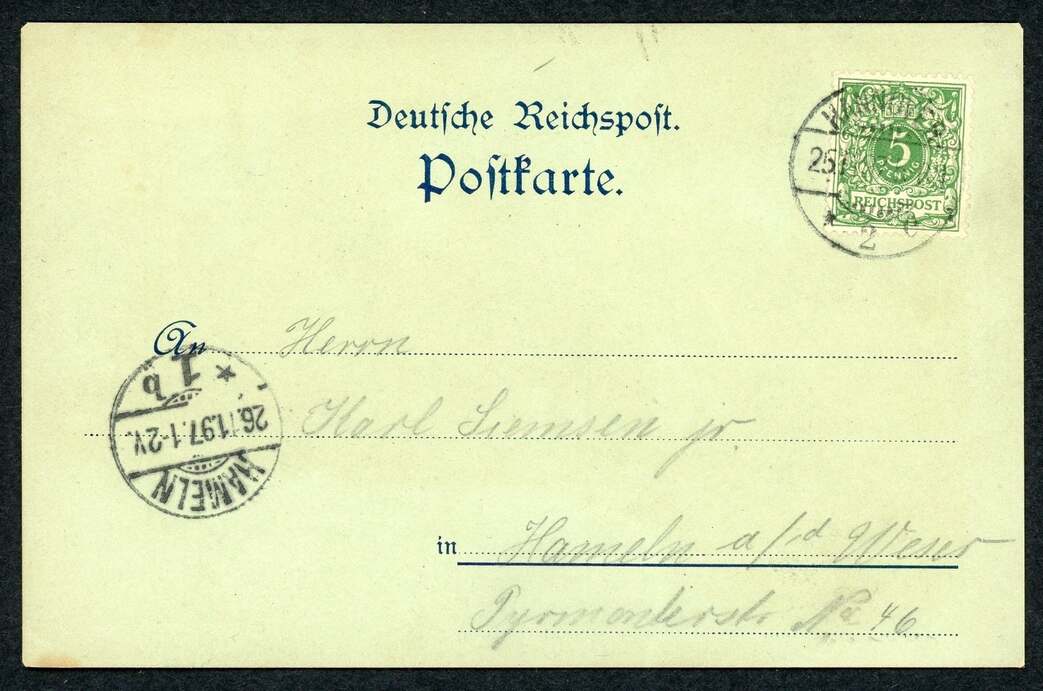 Deutsche Reichspost.
Postkarte.
HANNOVER
25
2 c
5
PFENNIG
REICHSPOST
An Herrn
Karl Siemsen jr.
in Hameln a/d Weser
Pyrmonterstr No 46.
HAMELN
26.11.97.1-2V.
1 b